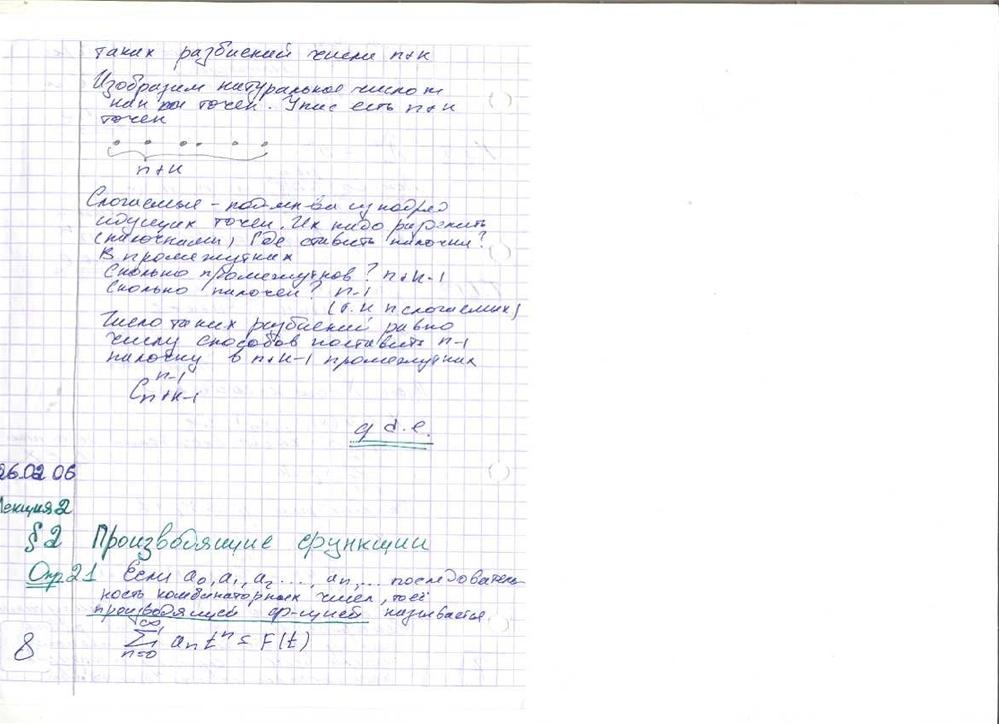 таких разбиений числа n+k
Изобразим натуральное число m
как m точек. У нас есть n+k
точек
n+k
Слогаемые - подмн-ва из подряд
идущих точек. Их надо разделить
(палочками) Где ставить палочки?
В промежутках
Сколько промежутков? n+k-1
Сколько палочек? n-1
(т.к n слогаемых)
Число таких разбиений равно
числу способов поставить n-1
палочку в n+k-1 промежутках
C_{n+k-1}^{n-1}
q.d.e.
26.02 06
Лекция 2
§2 Производящие функции
Опр 2.1 Если a₀, a₁, a₂ ..., aₙ, ... последователь-
ность комбинаторных чисел, то её
производящей ф-цией называется
\sum_{n=0}^{∞} aₙ tⁿ = F(t)
8